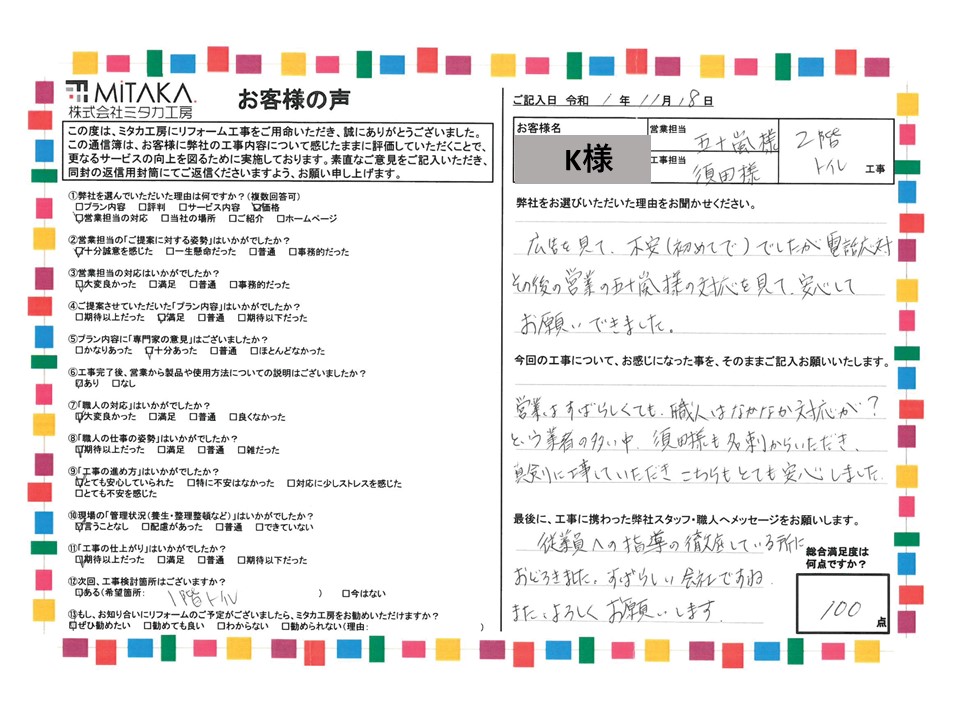 MiTAKA
株式会社ミタカ工房
お客様の声
この度は、ミタカ工房にリフォーム工事をご用命いただき、誠にありがとうございました。
この通信簿は、お客様に弊社の工事内容について感じたままに評価していただくことで、
更なるサービスの向上を図るために実施しております。素直なご意見をご記入いただき、
同封の返信用封筒にてご返信くださいますよう、お願い申し上げます。
①弊社を選んでいただいた理由は何ですか?(複数回答可)
□プラン内容 □評判 □サービス内容 ☑価格
☑営業担当の対応 □当社の場所 □ご紹介 □ホームページ
②営業担当の「ご提案に対する姿勢」はいかがでしたか?
☑十分誠意を感じた □一生懸命だった □普通 □事務的だった
③営業担当の対応はいかがでしたか?
☑大変良かった □満足 □普通 □事務的だった
④ご提案させていただいた「プラン内容」はいかがでしたか?
□期待以上だった ☑満足 □普通 □期待以下だった
⑤プラン内容に「専門家の意見」はございましたか?
□かなりあった ☑十分あった □普通 □ほとんどなかった
⑥工事完了後、営業から製品や使用方法についての説明はございましたか?
☑あり □なし
⑦「職人の対応」はいかがでしたか?
☑大変良かった □満足 □普通 □良くなかった
⑧「職人の仕事の姿勢」はいかがでしたか?
☑期待以上だった □満足 □普通 □雑だった
⑨「工事の進め方」はいかがでしたか?
☑とても安心していられた □特に不安はなかった □対応に少しストレスを感じた
□とても不安を感じた
⑩現場の「管理状況(養生・整理整頓など)」はいかがでしたか?
☑言うことなし □配慮があった □普通 □できていない
⑪「工事の仕上がり」はいかがでしたか?
☑期待以上だった □満足 □普通 □期待以下だった
⑫次回、工事検討箇所はございますか?
☑ある(希望箇所: 1階トイレ ) □今はない
⑬もし、お知り合いにリフォームのご予定がございましたら、ミタカ工房をお勧めいただけますか?
☑ぜひ勧めたい □勧めても良い □わからない □勧められない(理由: )
ご記入日 令和 1 年 11月 18日
お客様名
K様
営業担当 五十嵐様
工事担当 須田様
2階
トイレ 工事
弊社をお選びいただいた理由をお聞かせください。
広告を見て、不安(初めてで)でしたが電話応対
その後の営業の五十嵐様の対応を見て、安心して
お願いできました。
今回の工事について、お感じになった事を、そのままご記入お願いいたします。
営業はすばらしくても、職人はなかなか対応が?
という業者の多い中、須田様も名刺からいただき、
真剣に工事していただき こちらもとても安心しました.
最後に、工事に携わった弊社スタッフ・職人へメッセージをお願いします。
従業員への指導の徹底している所に
おどろきました。すばらしい会社ですね.
また、よろしくお願いします.
総合満足度は
何点ですか?
100 点